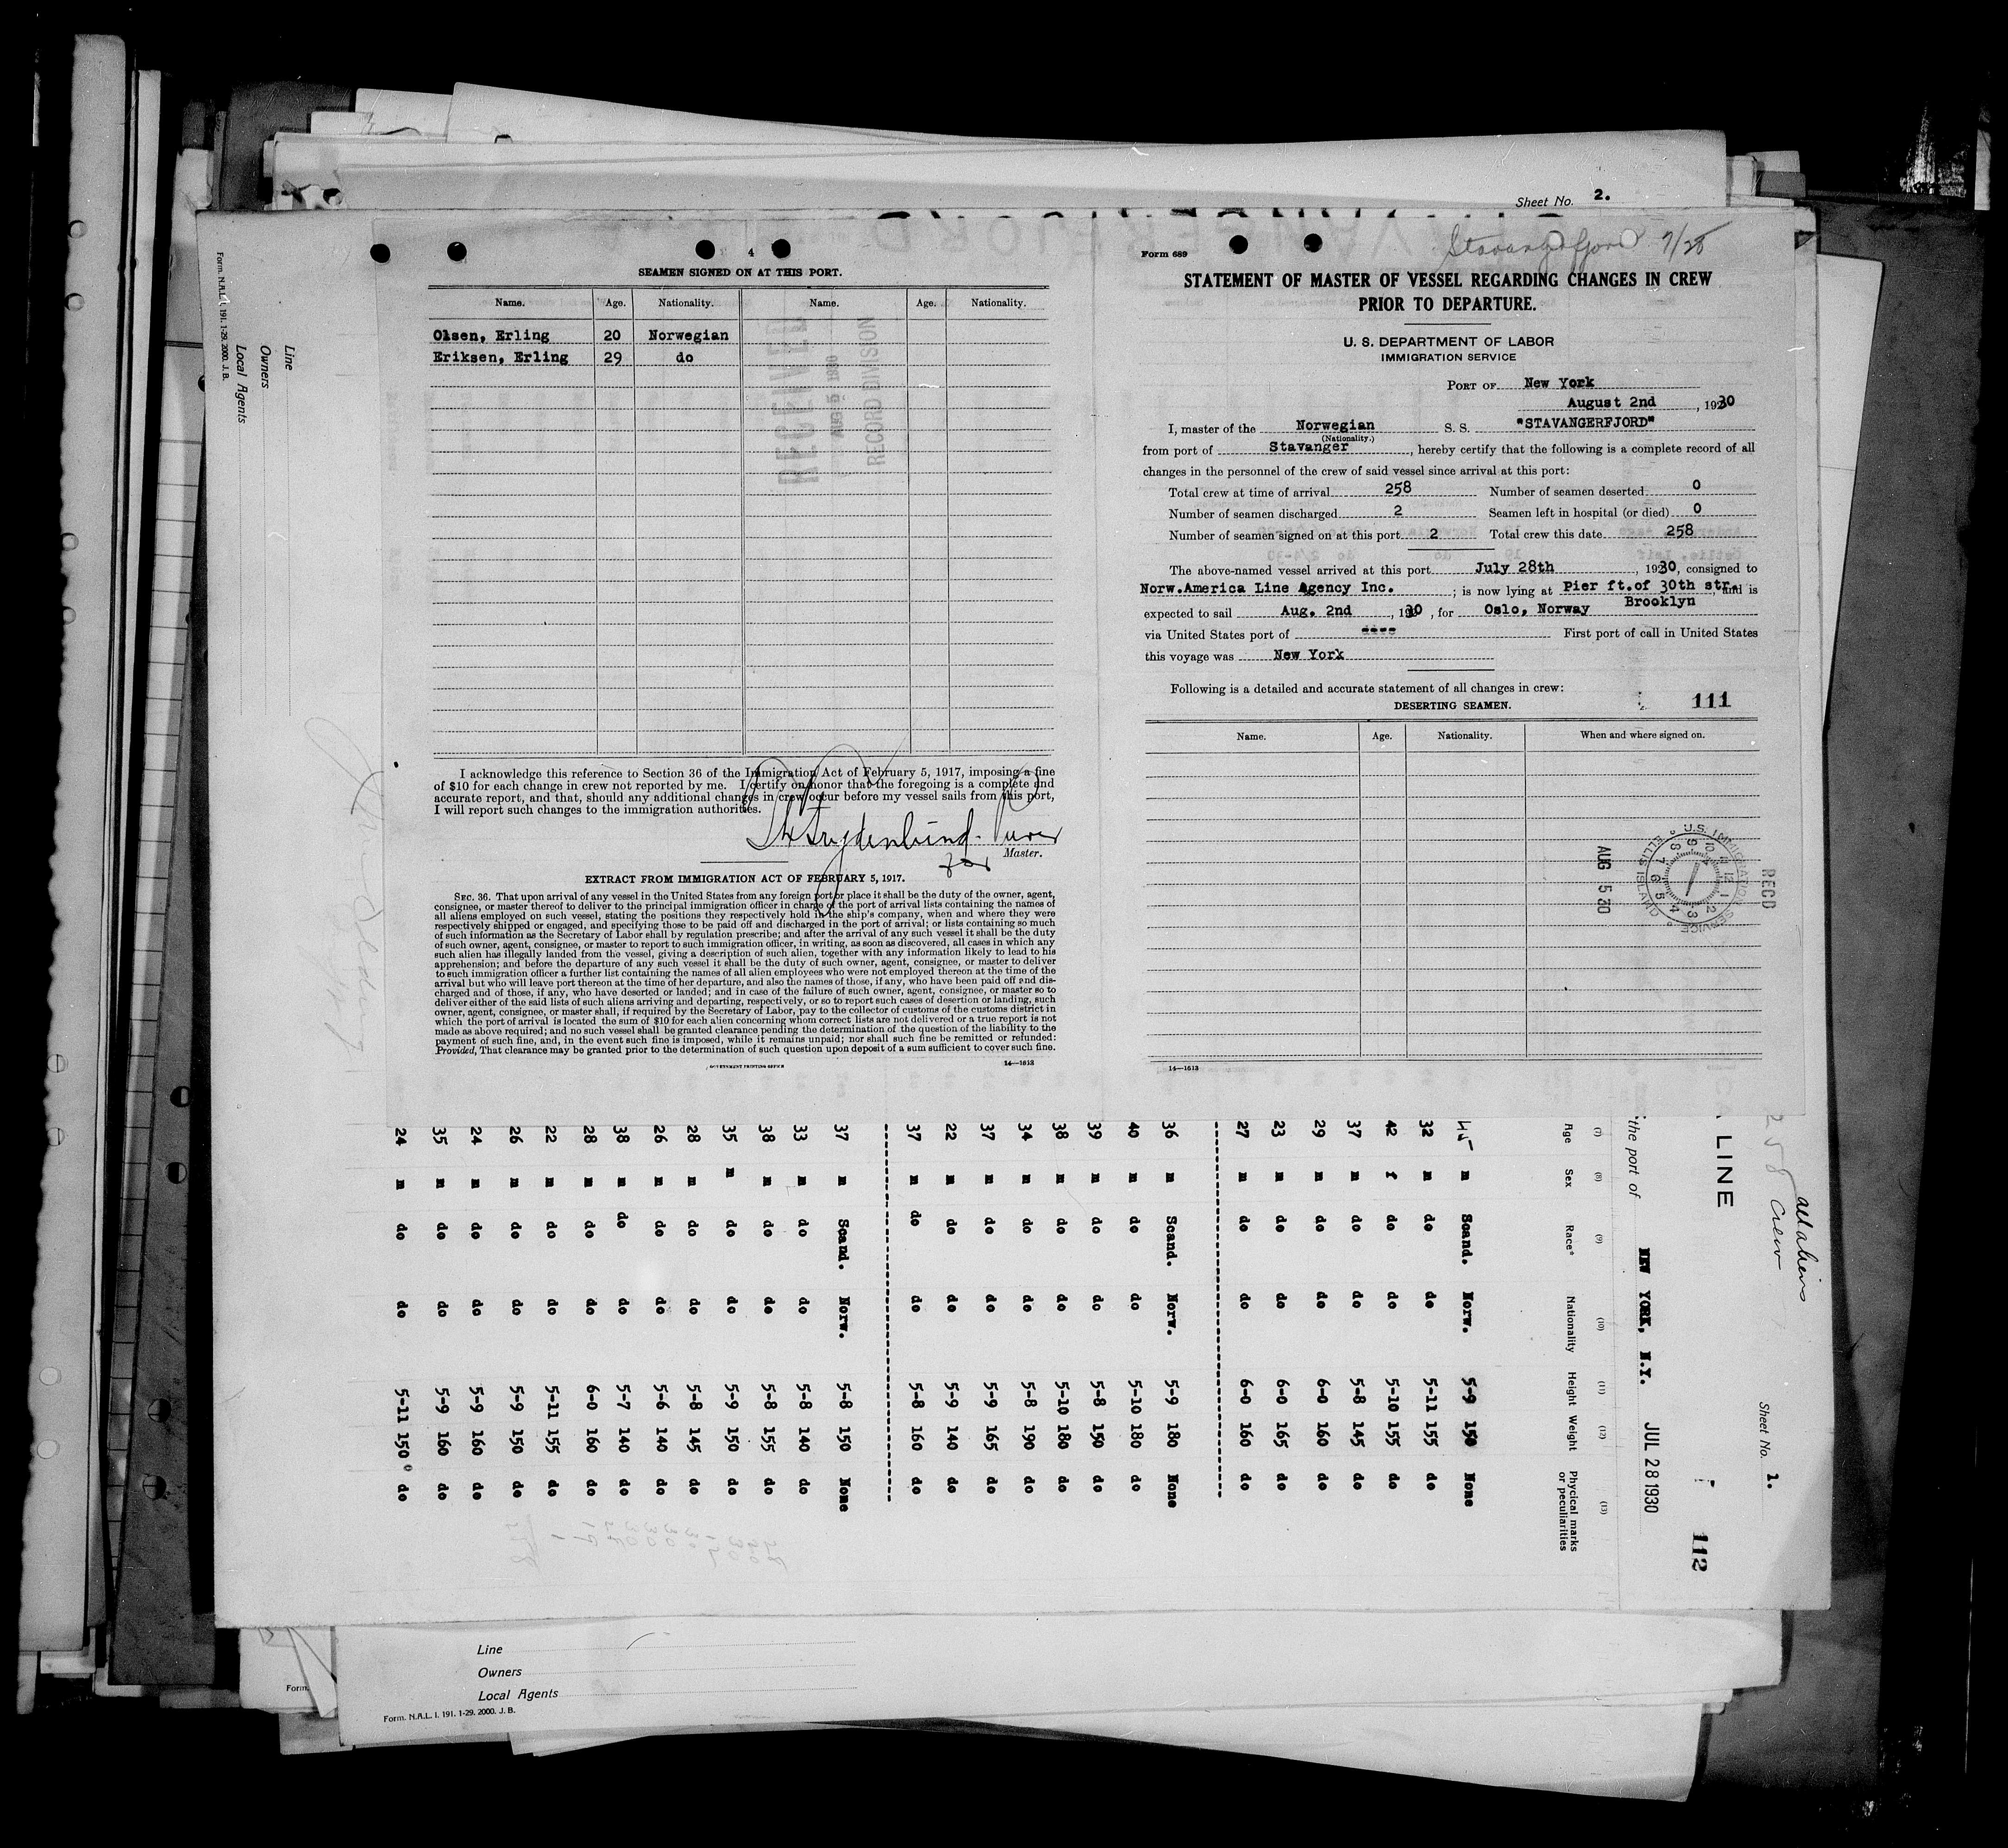 Sheet No. 2.
4
SEAMEN SIGNED ON AT THIS PORT.
Name. Age. Nationality. Name. Age. Nationality.
Olsen, Erling 20 Norwegian
Eriksen, Erling 29 do
RECEIVED
AUG 5 1930
RECORD DIVISION
I acknowledge this reference to Section 36 of the Immigration Act of February 5, 1917, imposing a fine
of $10 for each change in crew not reported by me. I certify on honor that the foregoing is a complete and
accurate report, and that, should any additional changes in crew occur before my vessel sails from this port,
I will report such changes to the immigration authorities.
for Master.
EXTRACT FROM IMMIGRATION ACT OF FEBRUARY 5, 1917.
SEC. 36. That upon arrival of any vessel in the United States from any foreign port or place it shall be the duty of the owner, agent,
consignee, or master thereof to deliver to the principal immigration officer in charge of the port of arrival lists containing the names of
all aliens employed on such vessel, stating the positions they respectively hold in the ship's company, when and where they were
respectively shipped or engaged, and specifying those to be paid off and discharged in the port of arrival; or lists containing so much
of such information as the Secretary of Labor shall by regulation prescribe; and after the arrival of any such vessel it shall be the duty
of such owner, agent, consignee, or master to report to such immigration officer, in writing, as soon as discovered, all cases in which any
such alien has illegally landed from the vessel, giving a description of such alien, together with any information likely to lead to his
apprehension; and before the departure of any such vessel it shall be the duty of such owner, agent, consignee, or master to deliver
to such immigration officer a further list containing the names of all alien employees who were not employed thereon at the time of the
arrival but who will leave port thereon at the time of her departure, and also the names of those, if any, who have been paid off and dis-
charged and of those, if any, who have deserted or landed; and in case of the failure of such owner, agent, consignee, or master so to
deliver either of the said lists of such aliens arriving and departing, respectively, or so to report such cases of desertion or landing, such
owner, agent, consignee, or master shall, if required by the Secretary of Labor, pay to the collector of customs of the customs district in
which the port of arrival is located the sum of $10 for each alien concerning whom correct lists are not delivered or a true report is not
made as above required; and no such vessel shall be granted clearance pending the determination of the question of the liability to the
payment of such fine, and, in the event such fine is imposed, while it remains unpaid; nor shall such fine be remitted or refunded:
Provided, That clearance may be granted prior to the determination of such question upon deposit of a sum sufficient to cover such fine.
GOVERNMENT PRINTING OFFICE 14—1613
Form 689
Stavangerfjord 7/28
STATEMENT OF MASTER OF VESSEL REGARDING CHANGES IN CREW
PRIOR TO DEPARTURE.
U. S. DEPARTMENT OF LABOR
IMMIGRATION SERVICE
PORT OF New York
August 2nd, 1930
I, master of the Norwegian S. S. "STAVANGERFJORD"
(Nationality.)
from port of Stavanger, hereby certify that the following is a complete record of all
changes in the personnel of the crew of said vessel since arrival at this port:
Total crew at time of arrival 258 Number of seamen deserted 0
Number of seamen discharged 2 Seamen left in hospital (or died) 0
Number of seamen signed on at this port 2 Total crew this date 258
The above-named vessel arrived at this port July 28th, 1930, consigned to
Norw.America Line Agency Inc.; is now lying at Pier ft.of 30th str. and is
Brooklyn
expected to sail Aug. 2nd, 1930, for Oslo, Norway
via United States port of ---- First port of call in United States
this voyage was New York
Following is a detailed and accurate statement of all changes in crew:
111
DESERTING SEAMEN.
Name. Age. Nationality. When and where signed on.
RECD
U.S. IMMIGRATION SERVICE ELLIS ISLAND
AUG 5 30
14—1613
258 Crew
all aliens
Sheet No. 1.
112
LINE
the port of NEW YORK, N.Y. JUL 28 1930
(7) (8) (9) (10) (11) (12) (13)
Age Sex Race* Nationality Height Weight Physical marks or peculiarities
45 m Scand. Norw. 5-9 150 None
32 m do do 5-11 155 do
42 f do do 5-10 155 do
37 m do do 5-8 145 do
29 m do do 6-0 160 do
23 m do do 6-0 165 do
27 m do do 6-0 160 do
36 m Scand. Norw. 5-9 180 None
40 m do do 5-10 180 do
39 m do do 5-8 150 do
38 m do do 5-10 180 do
34 m do do 5-8 190 do
37 m do do 5-9 165 do
22 m do do 5-9 140 do
37 m do do 5-8 160 do
37 m Scand. Norw. 5-8 150 None
33 m do do 5-8 140 do
38 m do do 5-8 155 do
35 m do do 5-9 150 do
28 m do do 5-8 145 do
26 m do do 5-6 140 do
38 m do do 5-7 140 do
28 m do do 6-0 160 do
22 m do do 5-11 155 do
26 m do do 5-9 150 do
24 m do do 5-9 160 do
35 m do do 5-9 160 do
24 m do do 5-11 150 do
Line
Owners
Local Agents
Form. N.A.L. 1. 191. 1-29. 2000. J. B.
Line
Owners
Local Agents
Form.
Form. N.A.L. 1. 191. 1-29. 2000. J. B.